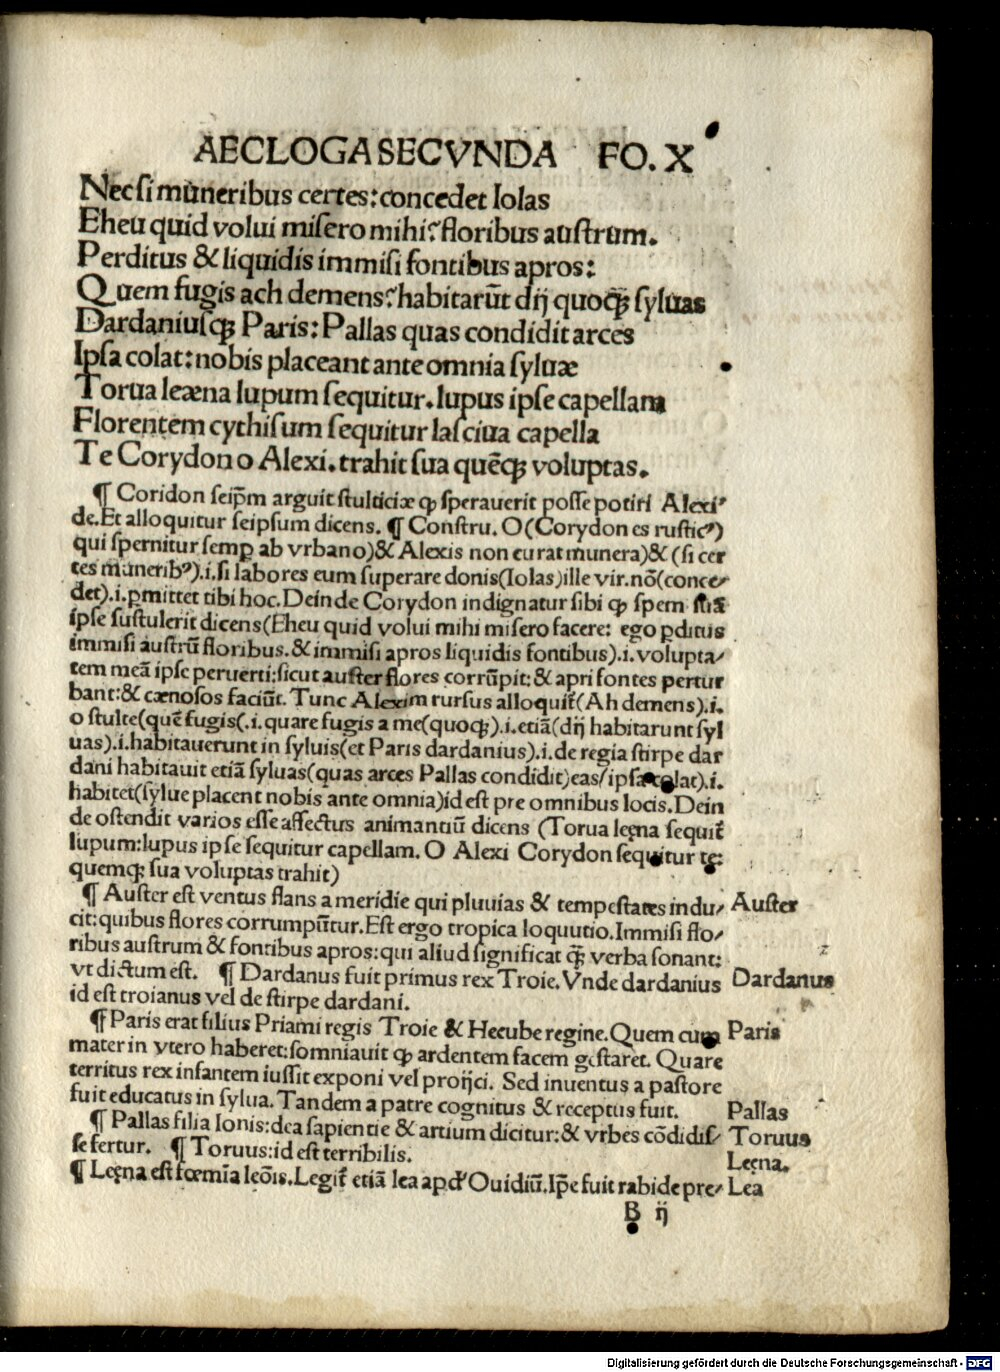 AECLOGA SECVNDA FO. X
Nec si muneribus certes: concedet Iolas
Eheu quid volui misero mihi? floribus austrum.
Perditus & liquidis immisi fontibus apros:
Quem fugis ach demens? habitarũt dij quoqꝫ syluas
Dardaniusqꝫ Paris: Pallas quas condidit arces
Ipsa colat: nobis placeant ante omnia syluæ
Torua leæna lupum sequitur. lupus ipse capellam
Florentem cythisum sequitur lasciua capella
Te Corydon o Alexi. trahit sua quẽqꝫ voluptas.
¶ Coridon seip̃m arguit stulticiæ ꝙ sperauerit posse potiri Alexi-
de. Et alloquitur seipsum dicens. ¶ Constru. O (Corydon es rusticꝰ)
qui spernitur semꝑ ab vrbano) & Alexis non curat munera) & (si cer
tes muneribꝰ) .i. si labores eum superare donis (Iolas) ille vir. nõ (conce-
det) .i. ꝑmittet tibi hoc. Deinde Corydon indignatur sibi ꝙ spem suã
ipse sustulerit dicens (Eheu quid volui mihi misero facere: ego ꝑditus
immisi austrũ floribus. & immisi apros liquidis fontibus) .i. volupta-
tem meã ipse peruerti: sicut auster flores corrũpit: & apri fontes pertur
bant: & cænosos faciũt. Tunc Alexim rursus alloquit᷑ (Ah demens) .i.
o stulte (quẽ fugis (.i. quare fugis a me (quoqꝫ) .i. etiã (dij habitarunt syl
uas) .i. habitauerunt in syluis (et Paris dardanius) .i. de regia stirpe dar
dani habitauit etiã syluas (quas arces Pallas condidit) eas (ipsa colat) .i.
habitet (sylue placent nobis ante omnia) id est pre omnibus locis. Dein
de ostendit varios esse affectus animantiũ dicens (Torua lęna sequit᷑
lupum: lupus ipse sequitur capellam. O Alexi Corydon sequitur te:
quemqꝫ sua voluptas trahit)
¶ Auster est ventus flans a meridie qui pluuias & tempestates indu- Auster
cit: quibus flores corrumpũtur. Est ergo tropica loquutio. Immisi flo-
ribus austrum & fontibus apros: qui aliud significat qꝫ̃ verba sonant:
vt dictum est. ¶ Dardanus fuit primus rex Troie. Vnde dardanius Dardanus
id est troianus vel de stirpe dardani.
¶ Paris erat filius Priami regis Troie & Hecube regine. Quem cum Paris
mater in vtero haberet: somniauit ꝙ ardentem facem gestaret. Quare
territus rex infantem iussit exponi vel proijci. Sed inuentus a pastore
fuit educatus in sylua. Tandem a patre cognitus & receptus fuit.
¶ Pallas filia Ionis: dea sapientie & artium dicitur: & vrbes cõdidis- Pallas
se fertur. ¶ Toruus: id est terribilis. Toruus
¶ Lęna est fœmĩa leõis. Legit᷑ etiã lea apđ Ouidiũ. Ip̃e fuit rabide pre- Lęna.
Lea
B ij
Digitalisierung gefördert durch die Deutsche Forschungsgemeinschaft - DFG